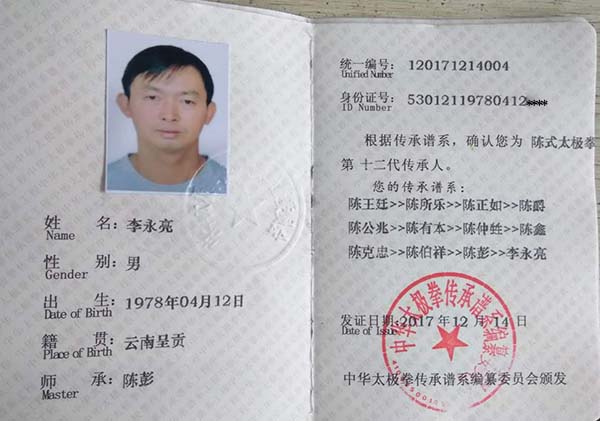 姓 名：李永亮
Name
性 别：男
Gender
出 生：1978年04月12日
Date of Birth
籍 贯：云南呈贡
Place of Birth
师 承：陈彭
Master
统一编号：120171214004
Unified Number
身份证号：53012119780412****
ID Number
根据传承谱系，确认您为 陈式太极拳
第 十二代传承人。
您的传承谱系：
陈王廷>>陈所乐>>陈正如>>陈爵
陈公兆>>陈有本>>陈仲甡>>陈鑫
陈克忠>>陈伯祥>>陈彭>>李永亮
发证日期：2017年12月14日
Date of Issue
中华太极拳传承谱系编纂委员会颁发